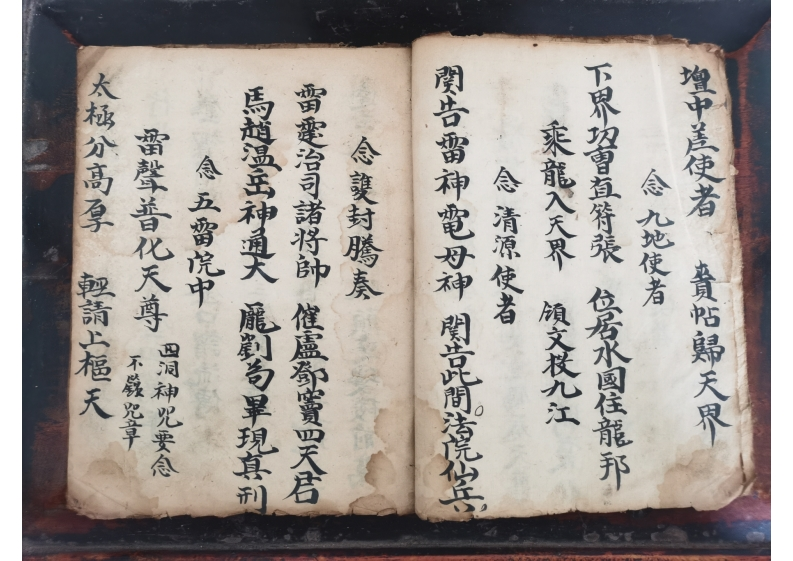 壇中差使者　賫帖歸天界
念九地使者
下界功曹直符張　位居水國住龍邦
乘龍入天界　領文投九江
念清源使者
関告雷神電母神　関告此間法院仙兵
念護封騰奏
雷霆治司諸將帥　催盧鄧竇四天君
馬趙溫岳神通大　龐劉苟畢現真刑
念五雷院中
雷聲普化天尊
四洞神咒要念
不嶽咒章
太極分高厚　輕請上樞天